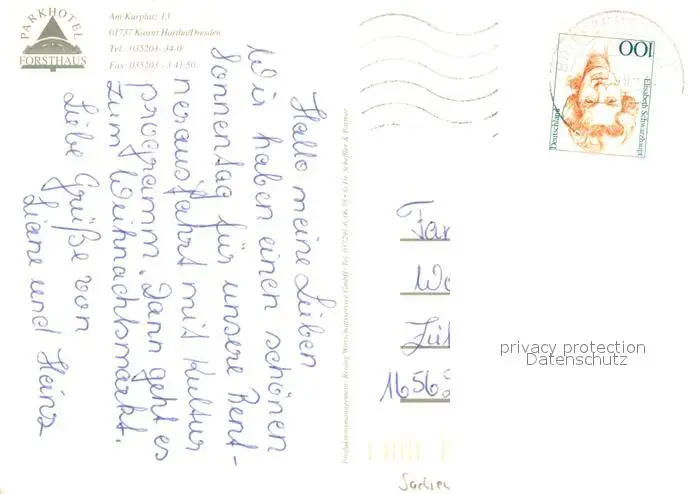 PARKHOTEL
FORSTHAUS
Am Kurplatz 13
01737 Kurort Hartha/Dresden
Tel. 035203-34-0
Fax: 035203-3 41 50
Hallo meine Lieben
Wir haben einen schönen
Sonnentag für unsere Rent-
nerausfahrt mit Kultur
programm. Dann geht es
zum Weihnachtsmarkt.
Liebe Grüße von
Liane und Heinz
100
Elisabeth Schwarzhaupt
Deutschland
Fam
Wo
Zül
1656
privacy protection
Datenschutz
Sachsen